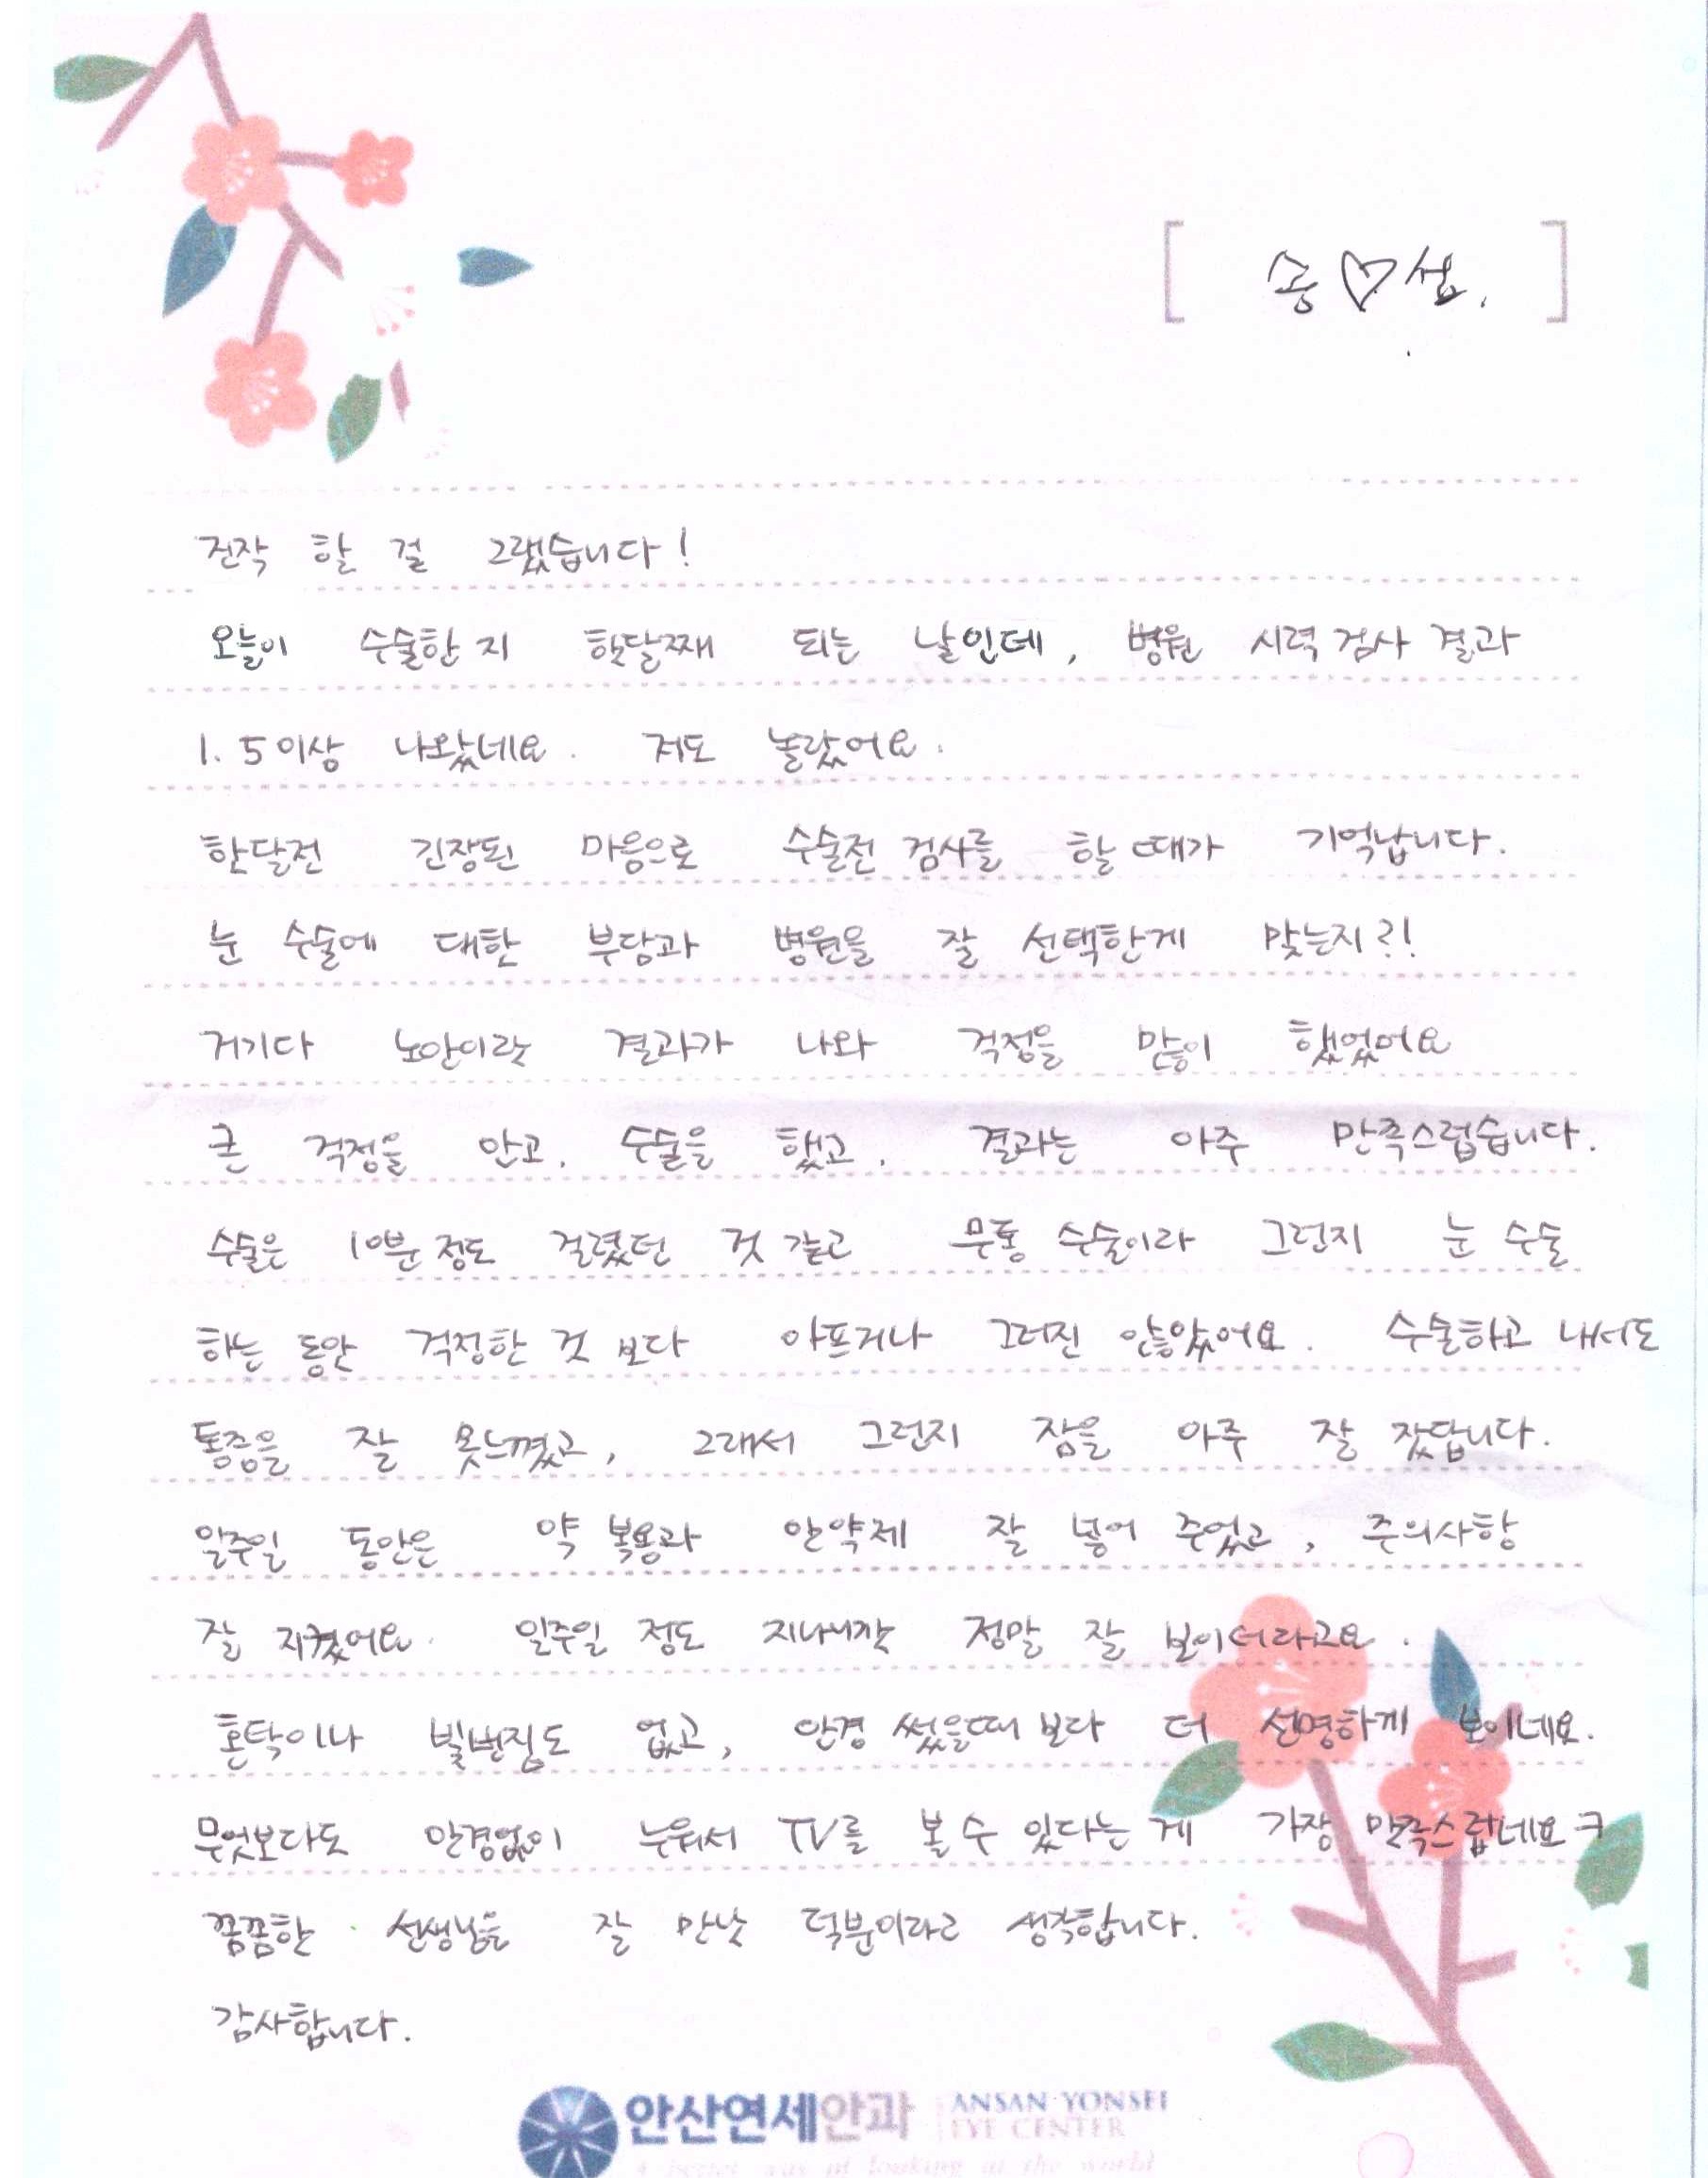 [ 송♡섭. ]
진작 할 걸 그랬습니다!
오늘이 수술한 지 한달째 되는 날인데, 병원 시력 검사 결과
1.5이상 나왔네요. 저도 놀랐어요.
한달전 긴장된 마음으로 수술전 검사를 할 때가 기억납니다.
눈 수술에 대한 부담과 병원을 잘 선택한게 맞는지?!
거기다 노안이란 결과가 나와 걱정을 많이 했었어요
큰 걱정을 안고, 수술을 했고, 결과는 아주 만족스럽습니다.
수술은 10분 정도 걸렸던 것 같고 무통 수술이라 그런지 눈 수술
하는 동안 걱정한 것 보다 아프거나 그러진 않았어요. 수술하고 나서도
통증을 잘 못느꼈고, 그래서 그런지 잠을 아주 잘 잤답니다.
일주일 동안은 약 복용과 안약제 잘 넣어 주었고, 주의사항
잘 지켰어요. 일주일 정도 지나니깐 정말 잘 보이더라고요.
혼탁이나 빛번짐도 없고, 안경 썼을때 보다 더 선명하게 보이네요.
무엇보다도 안경없이 누워서 TV를 볼 수 있다는 게 가장 만족스럽네요ㅋ
꼼꼼한 선생님을 잘 만난 덕분이라고 생각합니다.
감사합니다.
안산연세안과 ANSAN YONSEI
EYE CENTER
A better way of looking at the world